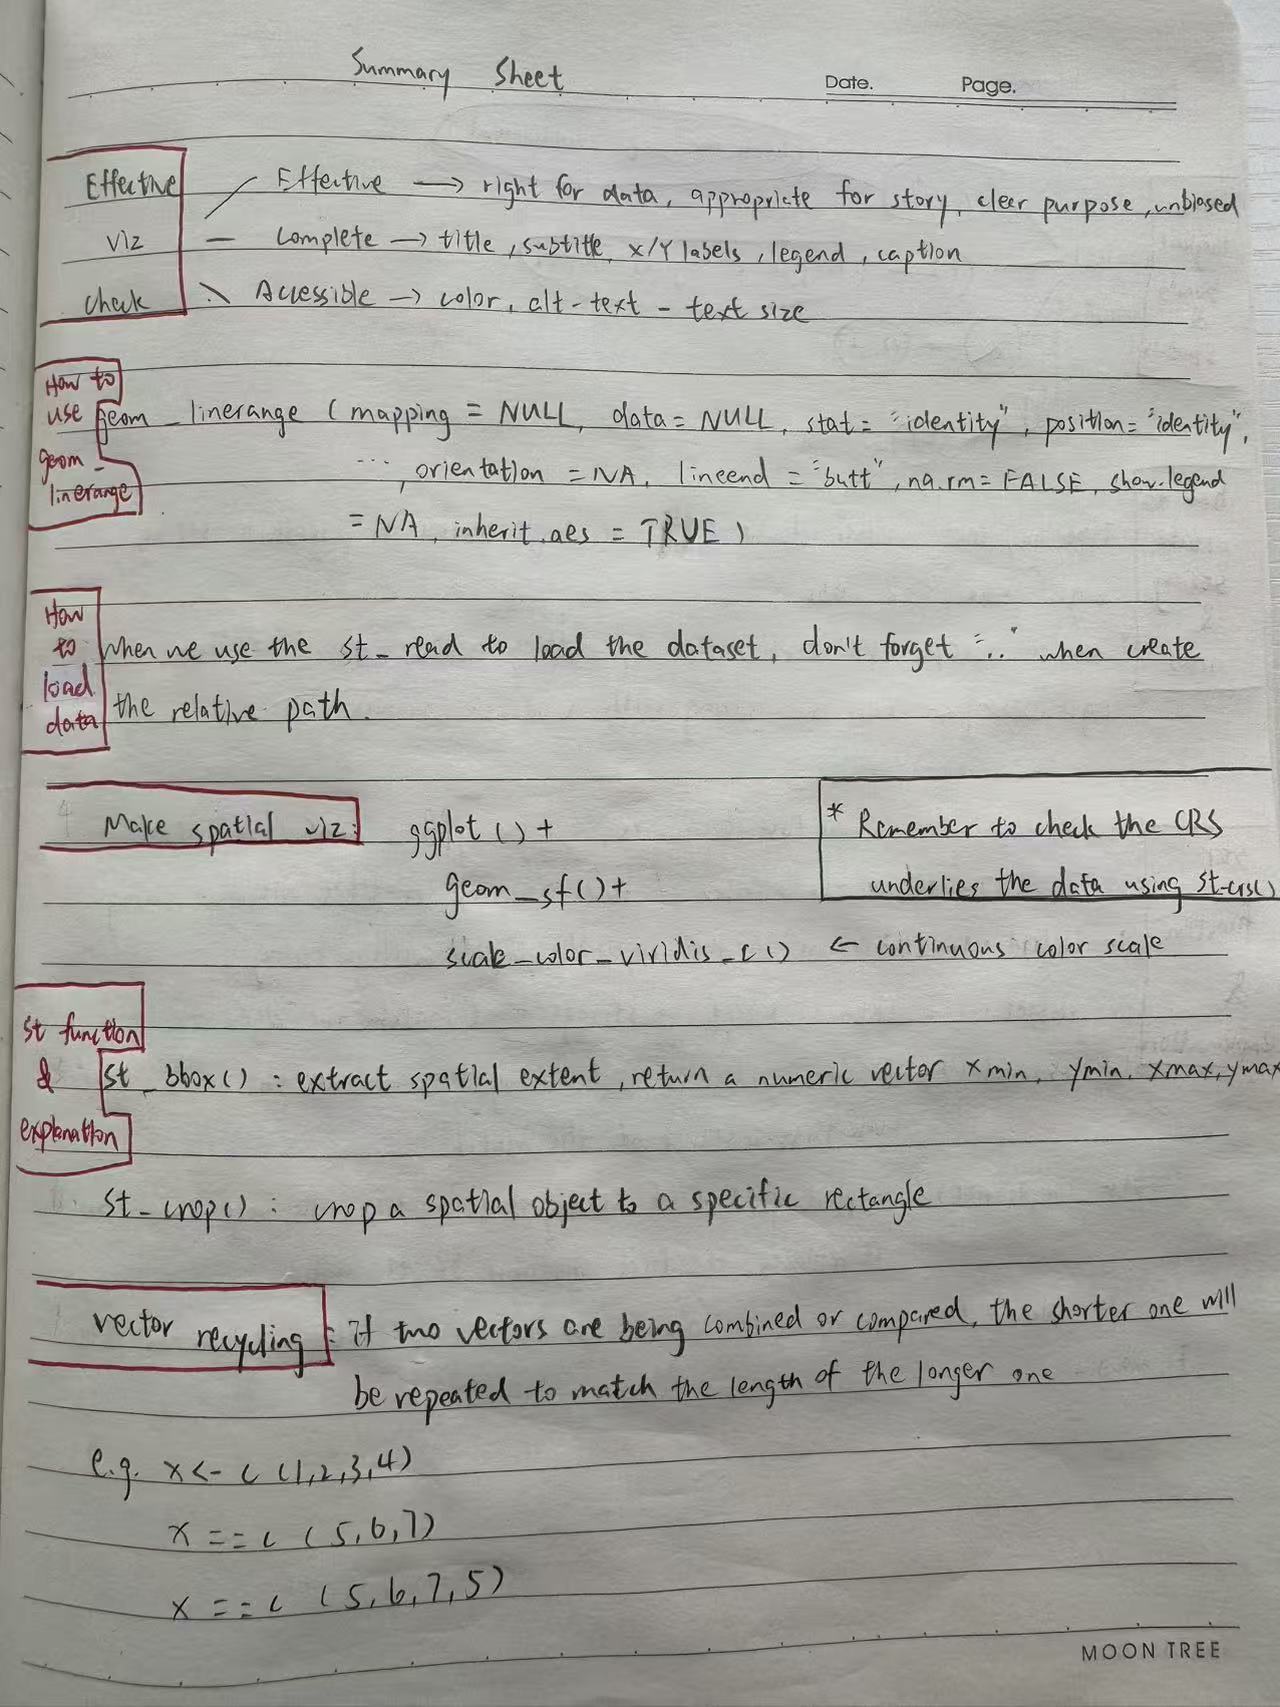 Summary Sheet
Date. Page.
Effective viz check
Effective → right for data, appropriate for story, clear purpose, unbiased
Complete → title, subtitle, x/Y labels, legend, caption
Accessible → color, alt-text - text size
How to use geom_linerange
geom_linerange (mapping = NULL, data = NULL, stat = "identity", position = "identity",
..., orientation = NA, lineend = "butt", na.rm = FALSE, show.legend
= NA, inherit.aes = TRUE)
How to load data
When we use the st_read to load the dataset, don't forget ".." when create
the relative path.
Make spatial viz:
ggplot () +
geom_sf() +
scale_color_viridis_c() ← continuous color scale
* Remember to check the CRS
underlies the data using st-crs()
st function & explanation
st_bbox() : extract spatial extent, return a numeric vector xmin, ymin, xmax, ymax
st_crop() : crop a spatial object to a specific rectangle
vector recycling : if two vectors are being combined or compared, the shorter one will
be repeated to match the length of the longer one
e.g. x <- c (1,2,3,4)
x == c (5,6,7)
x == c (5,6,7,5)
MOON TREE